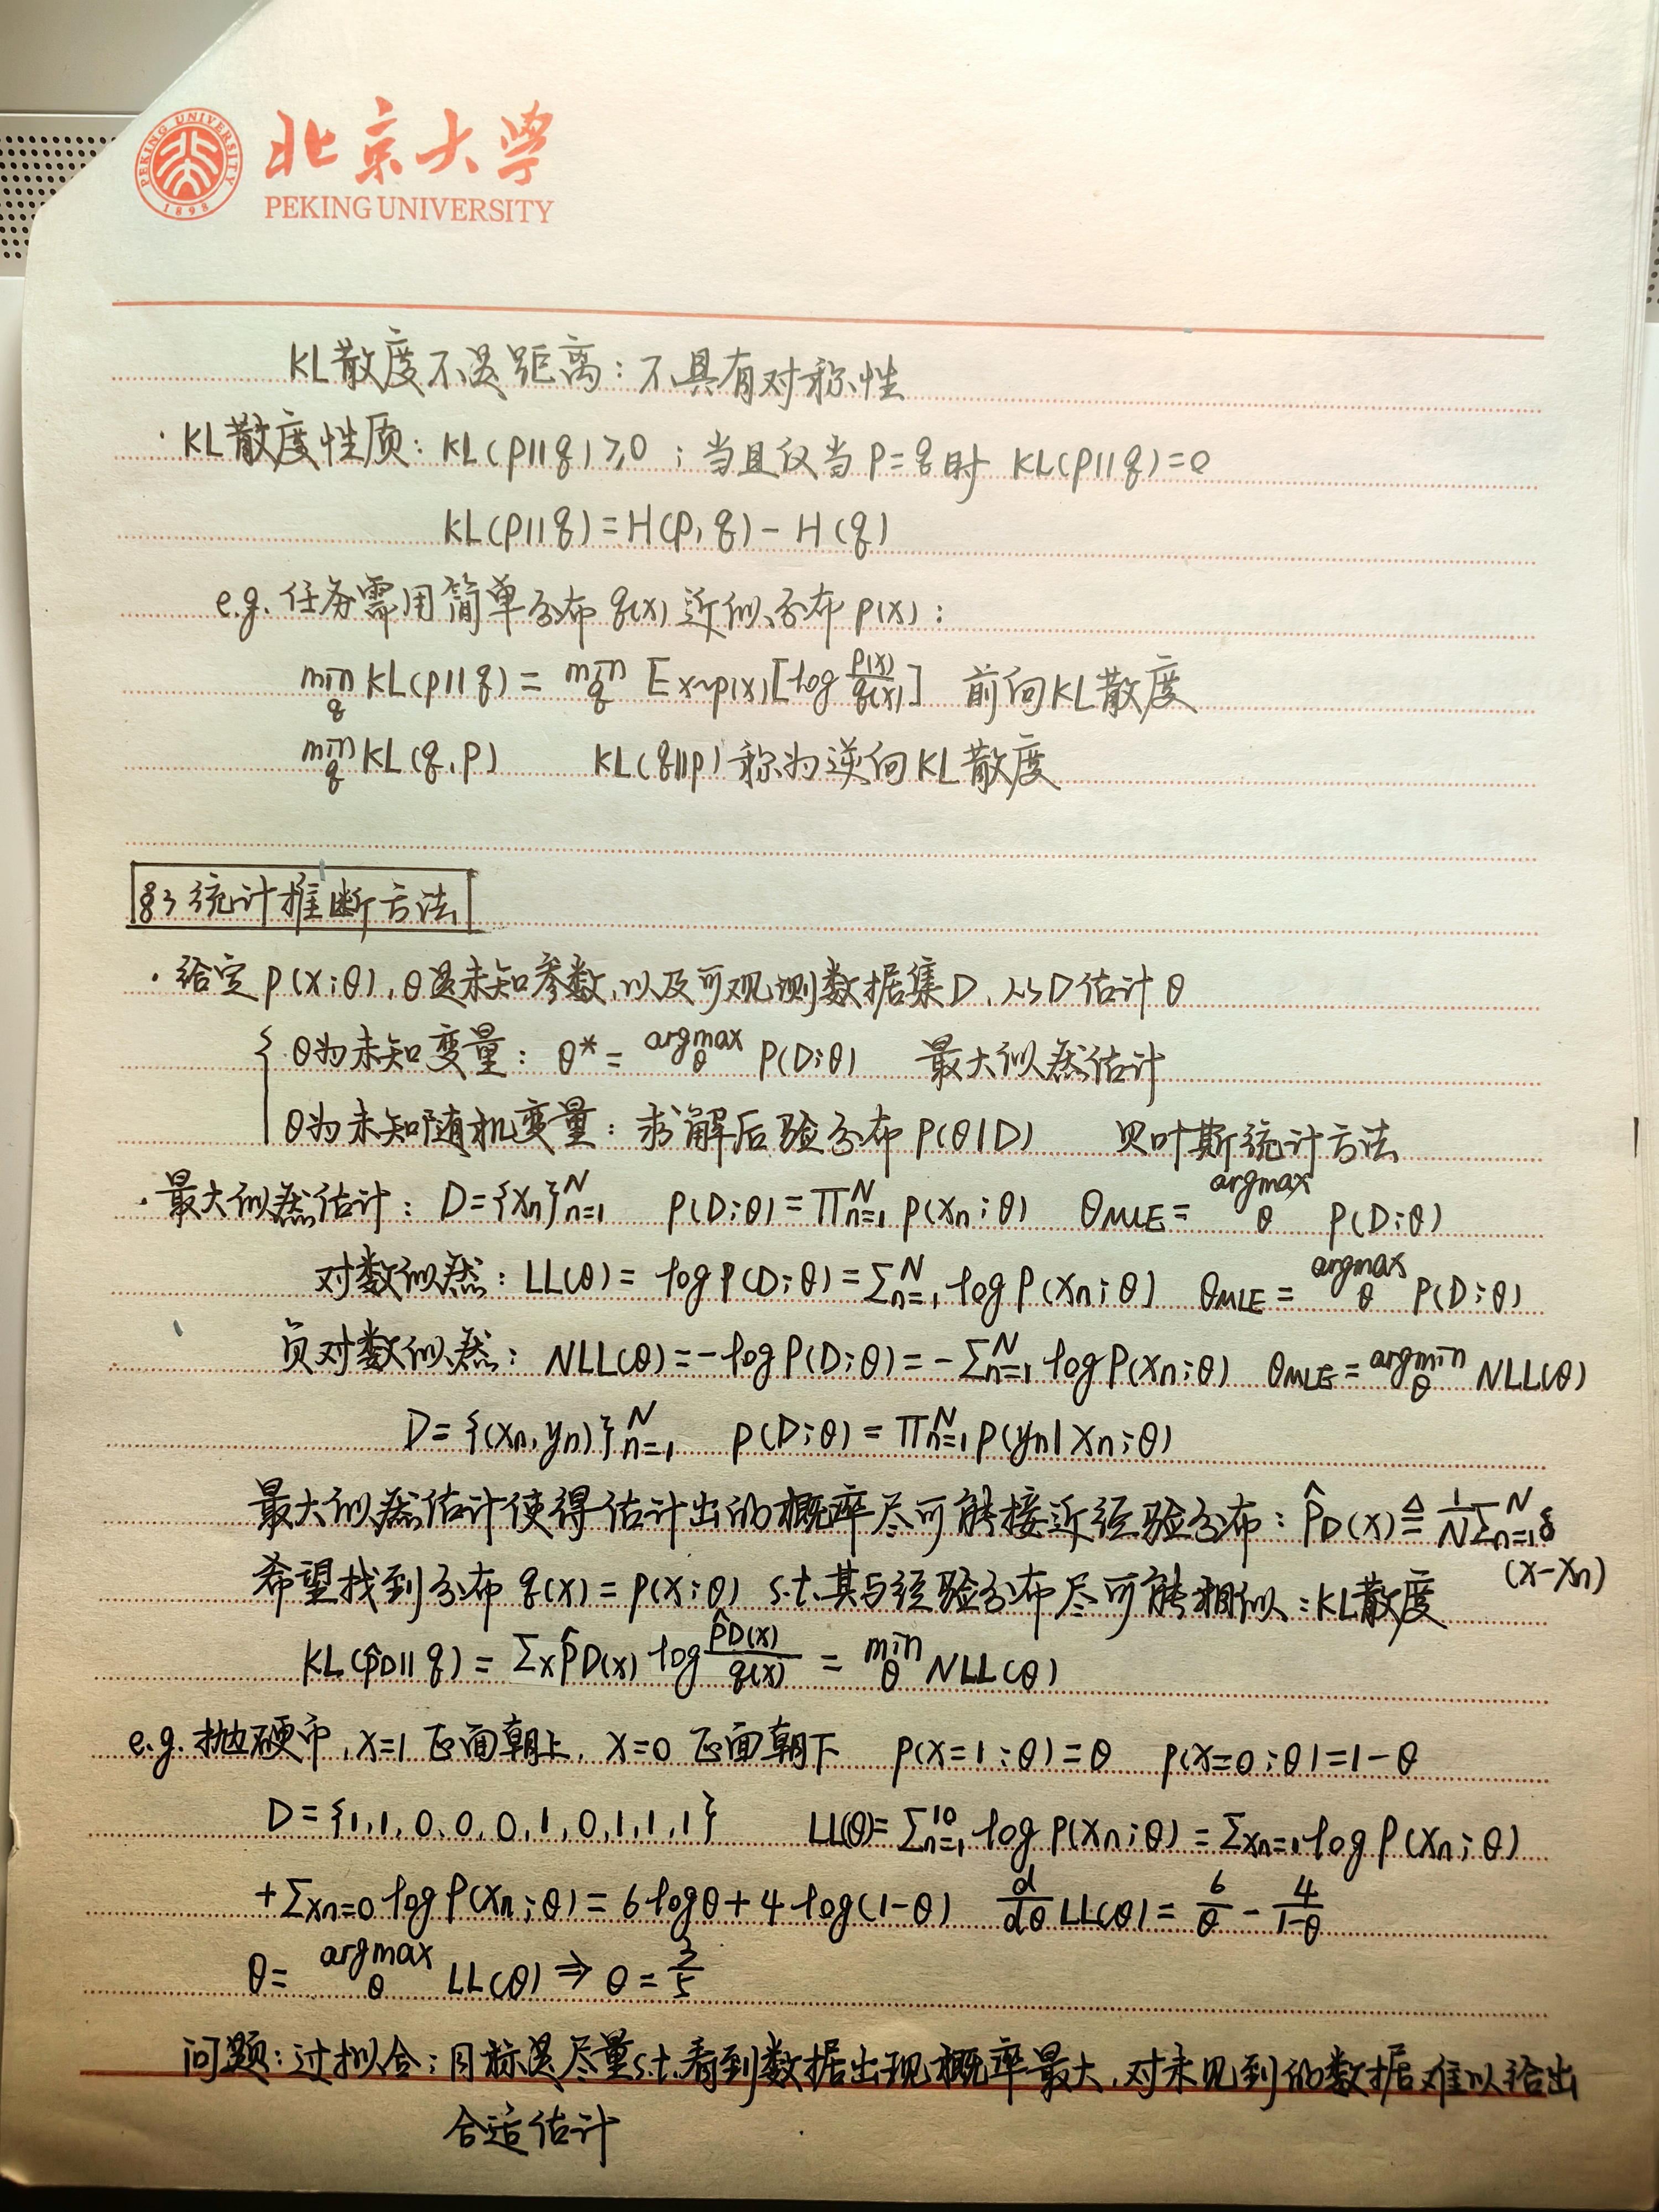 PEKING UNIVERSITY 1898
北京大学
PEKING UNIVERSITY
KL散度不是距离：不具有对称性
· KL散度性质：KL(p||q)≥0；当且仅当p=q时 KL(p||q)=0
KL(p||q)=H(p,q)-H(q)
e.g. 任务需用简单分布q(x)近似分布p(x)：
min_q KL(p||q)= min_q E_{x~p(x)}[log p(x)/q(x)] 前向KL散度
min_q KL(q,p) KL(q||p)称为逆向KL散度
§3 统计推断方法
· 给定p(x;θ), θ是未知参数,以及可观测数据集D,从D估计θ
{ θ为未知变量: θ*= argmax_θ P(D;θ) 最大似然估计
θ为未知随机变量: 求解后验分布P(θ|D) 贝叶斯统计方法
· 最大似然估计: D={xn}_{n=1}^N p(D;θ)=∏_{n=1}^N p(xn;θ) θMLE= argmax_θ P(D;θ)
对数似然: LL(θ)= log p(D;θ)=∑_{n=1}^N log p(xn;θ) θMLE= argmax_θ P(D;θ)
负对数似然: NLL(θ)=-log P(D;θ)=-∑_{n=1}^N log P(xn;θ) θMLE= argmin_θ NLL(θ)
D={(xn,yn)}_{n=1}^N p(D;θ)=∏_{n=1}^N p(yn|xn;θ)
最大似然估计使得估计出的概率尽可能接近经验分布: p̂D(x)≜1/N∑_{n=1}^N δ
(x-xn)
希望找到分布q(x)=p(x;θ) s.t.其与经验分布尽可能相似:KL散度
KL(p̂D||q)=∑x p̂D(x) log p̂D(x)/q(x) = min_θ NLL(θ)
e.g. 抛硬币, x=1 正面朝上, x=0 正面朝下 p(x=1;θ)=θ p(x=0;θ)=1-θ
D={1,1,0,0,0,1,0,1,1,1} LL(θ)=∑_{n=1}^{10} log p(xn;θ)=∑_{xn=1} log p(xn;θ)
+∑_{xn=0} log p(xn;θ)=6 log θ+4 log(1-θ) d/dθ LL(θ)=6/θ-4/(1-θ)
θ= argmax_θ LL(θ) ⇒ θ=3/5
问题:过拟合:目标是尽量s.t.看到数据出现概率最大,对未见到的数据难以给出
合适估计